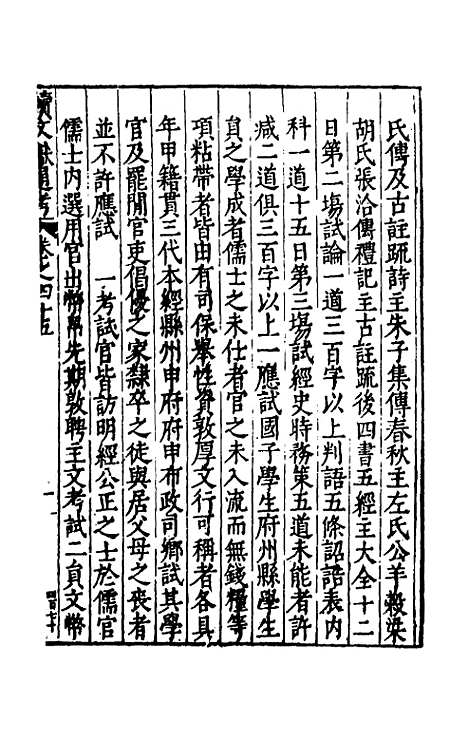 氏傳及古註䟽詩主朱子集傳春秋主左氏公羊榖梁
胡氏張洽傳禮記主古註䟽後四書五經主大全十二
日第二塲試論一道三百字以上判語五條詔誥表內
科一道十五日第三塲試經史時務策五道未能者許
减二道俱三百字以上一應試國子學生府州縣學生
員之學成者儒士之未仕者官之未入流而無錢糧等
項粘帶者皆由有司保舉性資敦厚文行可稱者各具
年甲籍貫三代本經縣州申府府申布政司鄉試其學
官及罷閒官吏倡優之家隸卒之徒與居父母之喪者
並不許應試　一考試官皆訪明經公正之士於儒官
儒士內選用官出幣帛先期敦聘主文考試二員文幣
續文獻通考 卷之四十五